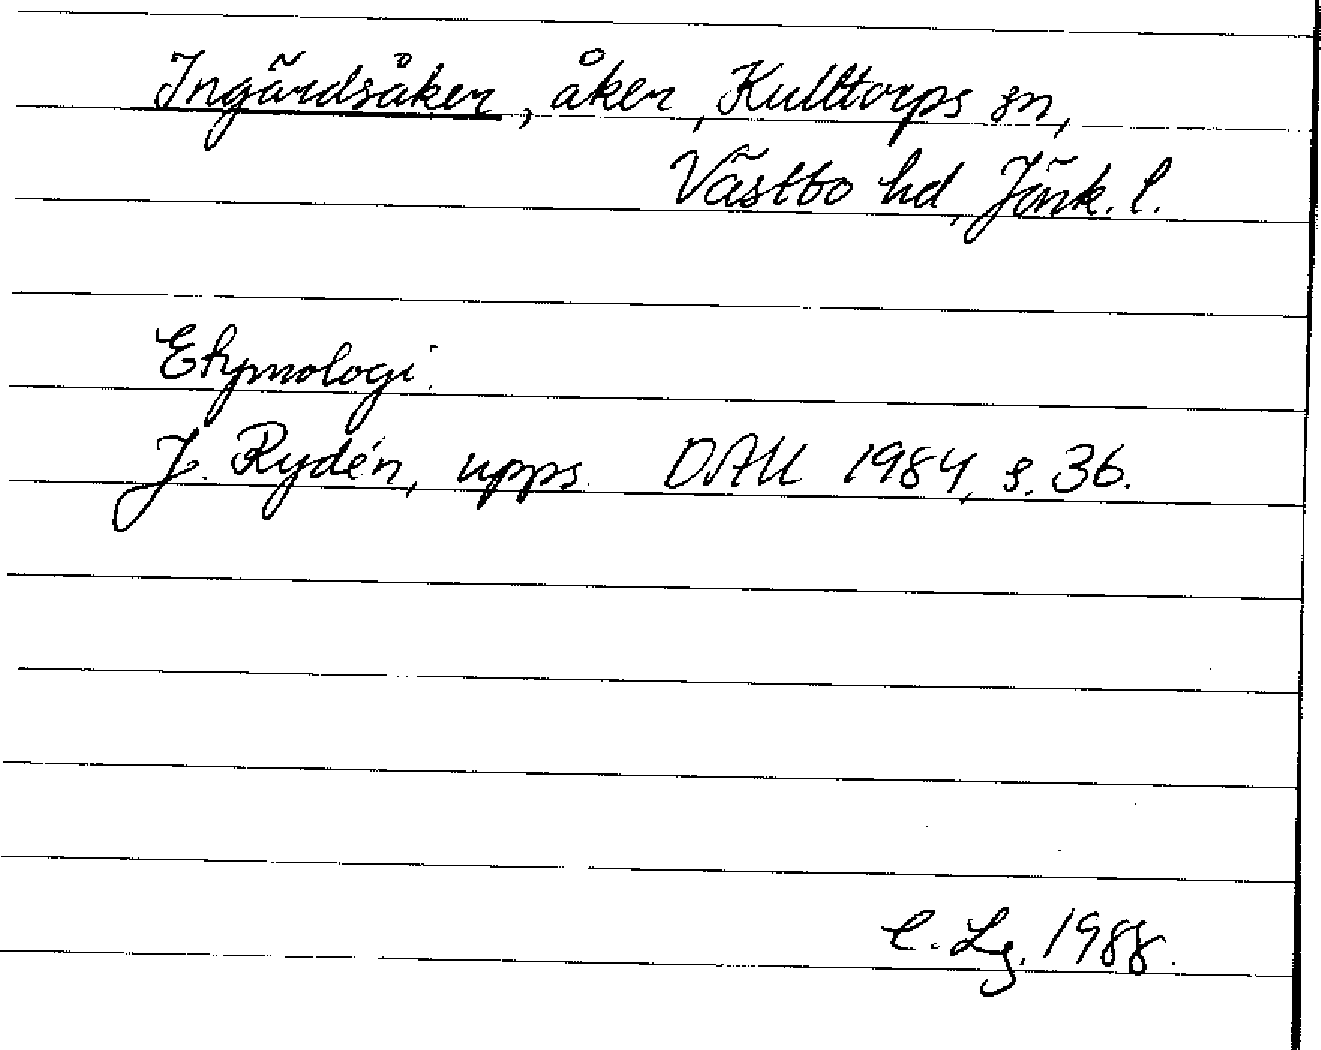 Ingärdsåker, åker, Kulltorps sn,
Västbo hd, Jönk. l.
Etymologi:
J. Rydén, upps. DAU 1984, s. 36.
C. Lg. 1988.